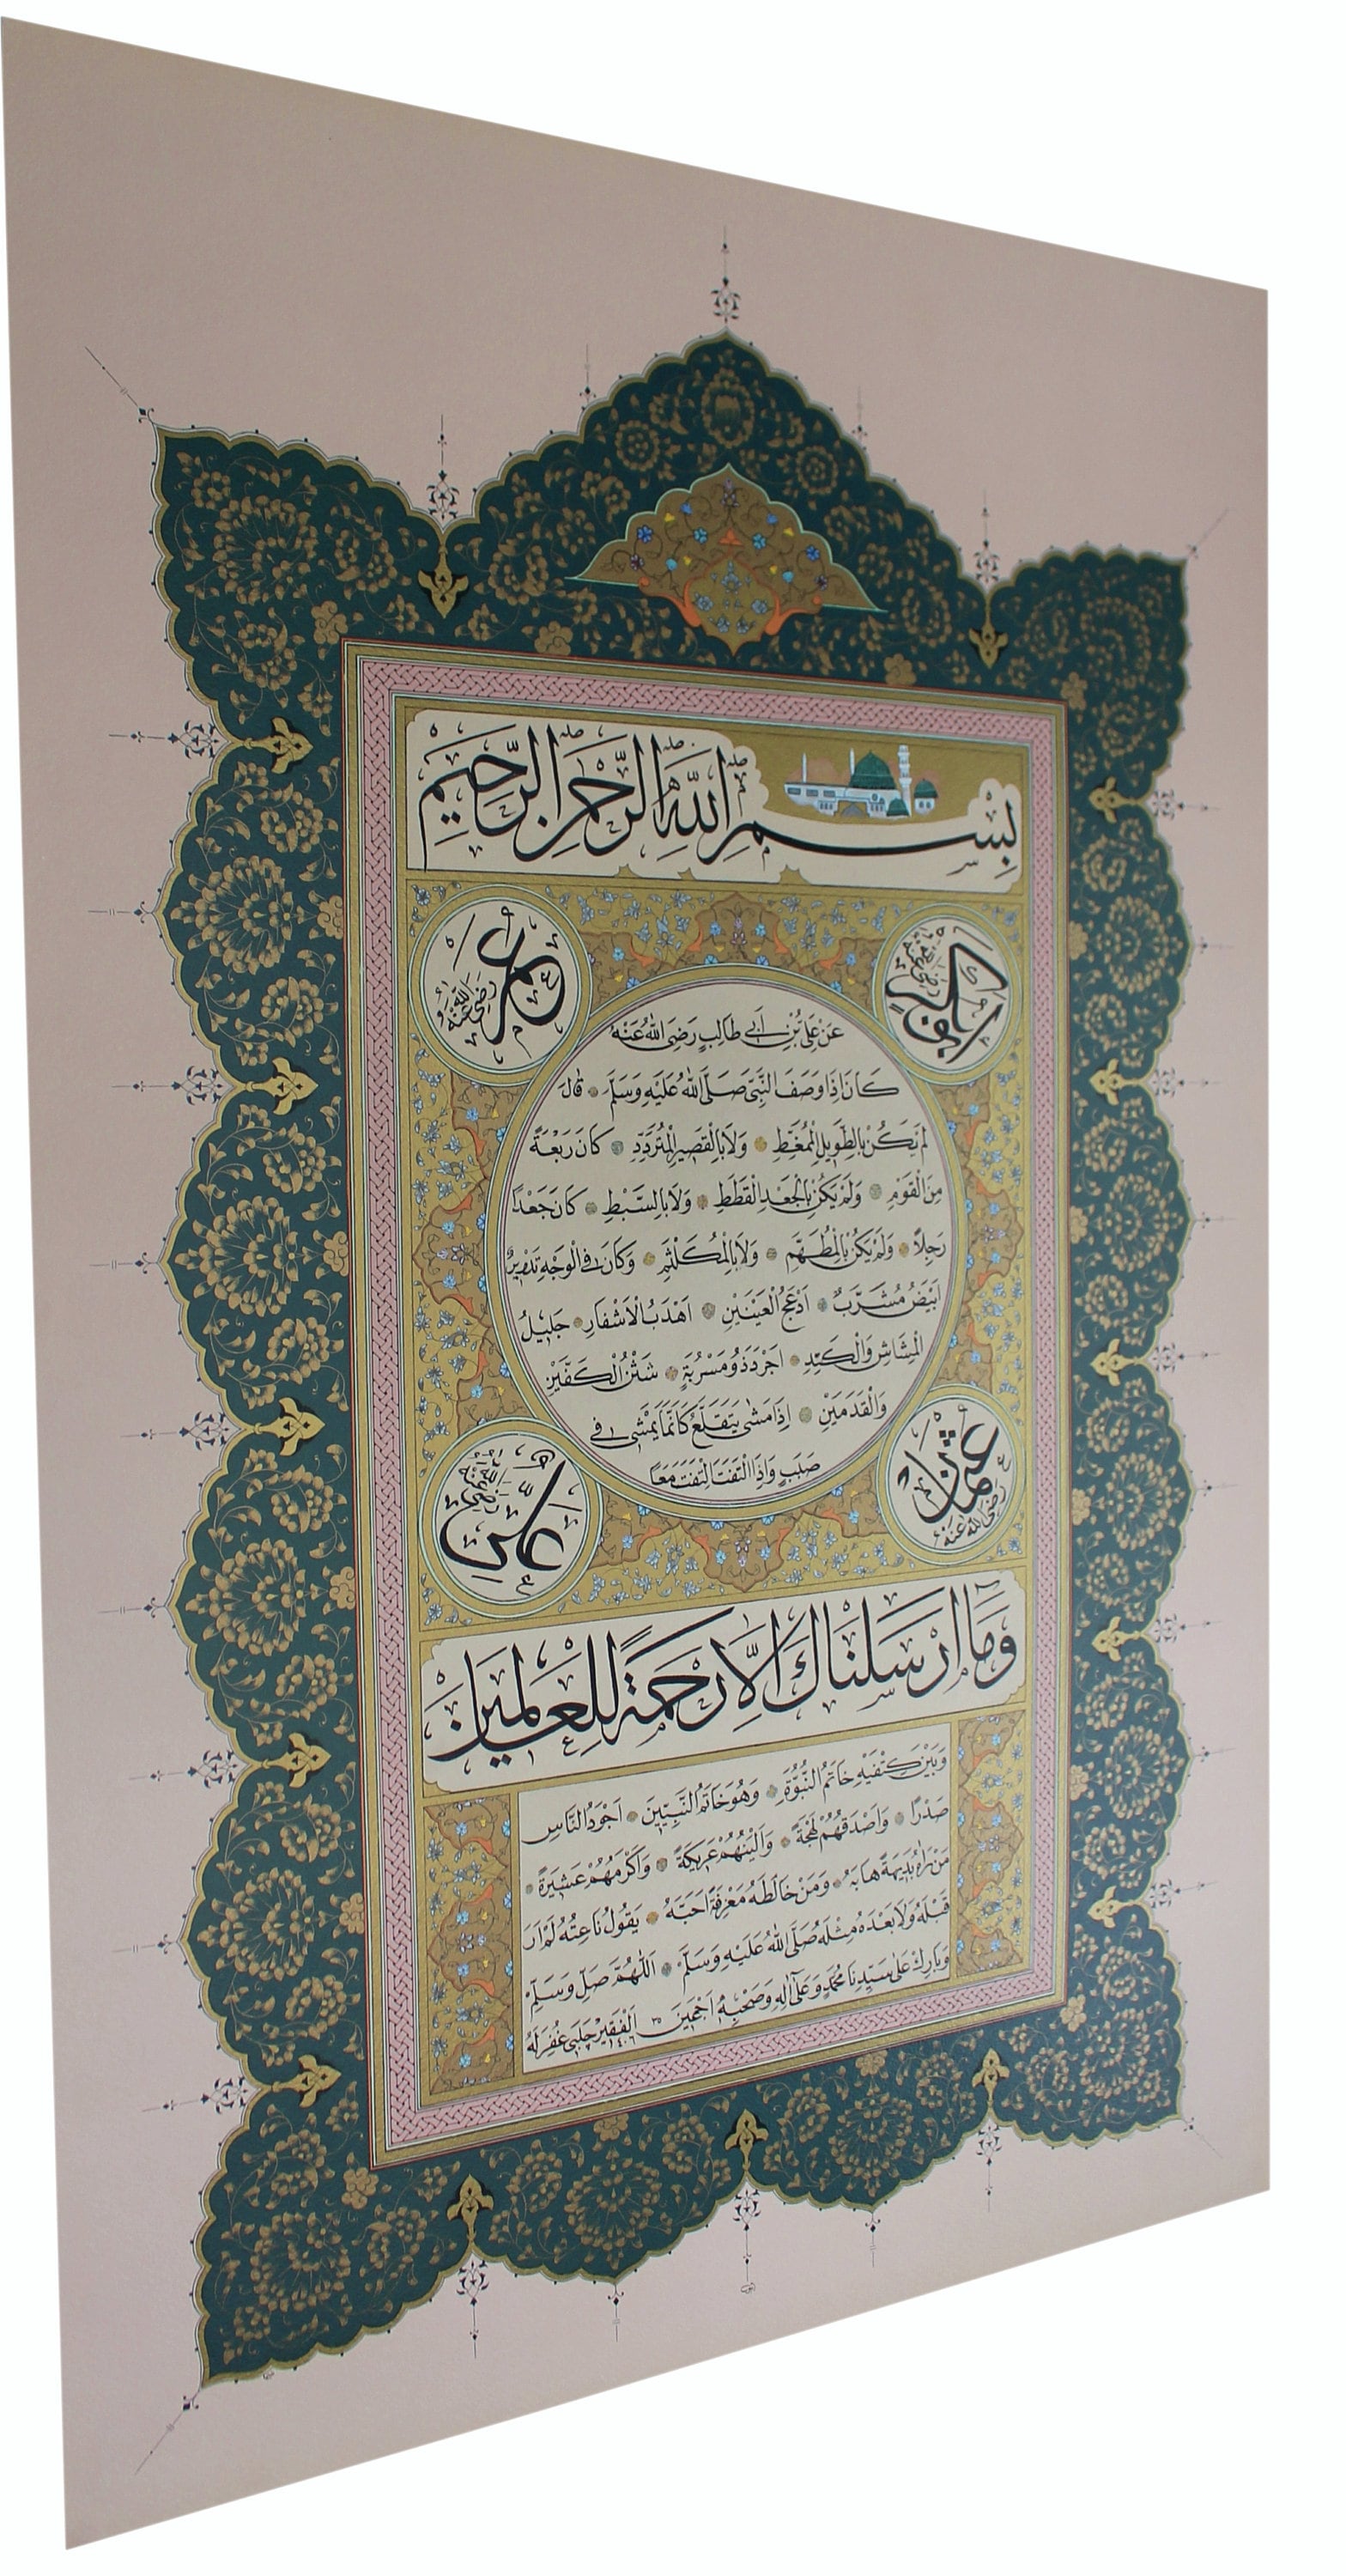 بِسْمِ اللهِ الرَّحْمٰنِ الرَّحِيمِ
ابو بكر رضي الله عنه
عمر رضي الله عنه
عَنْ عَلِيِّ بْنِ أَبِي طَالِبٍ رَضِيَ اللهُ عَنْهُ
كَانَ اِذَا وَصَفَ النَّبِيَّ صَلَّى اللهُ عَلَيْهِ وَسَلَّمَ قَالَ
لَمْ يَكُنْ بِالطَّوِيلِ الْمُمَّغِطِ وَلَا بِالْقَصِيرِ الْمُتَرَدِّدِ كَانَ رَبْعَةً
مِنَ الْقَوْمِ وَلَمْ يَكُنْ بِالْجَعْدِ الْقَطَطِ وَلَا بِالسَّبْطِ كَانَ جَعْدًا
رَجِلًا وَلَمْ يَكُنْ بِالْمُطَهَّمِ وَلَا بِالْمُكَلْثَمِ وَكَانَ فِي الْوَجْهِ تَدْوِيرٌ
اَبْيَضُ مُشَرَّبٌ اَدْعَجُ الْعَيْنَيْنِ اَهْدَبُ الْاَشْفَارِ جَلِيلُ
الْمُشَاشِ وَالْكَتَدِ اَجْرَدُ ذُو مَسْرُبَةٍ شَثْنُ الْكَفَّيْنِ
وَالْقَدَمَيْنِ اِذَا مَشٰى يَتَقَلَّعُ كَاَنَّمَا يَمْشِي فِي
صَبَبٍ وَاِذَا الْتَفَتَ الْتَفَتَ مَعًا
عثمان رضي الله عنه
علي رضي الله عنه
وَمَا اَرْسَلْنَاكَ اِلَّا رَحْمَةً لِلْعَالَمِينَ
وَبَيْنَ كَتِفَيْهِ خَاتَمُ النُّبُوَّةِ وَهُوَ خَاتَمُ النَّبِيِّينَ اَجْوَدُ النَّاسِ
صَدْرًا وَاَصْدَقُهُمْ لَهْجَةً وَاَلْيَنُهُمْ عَرِيكَةً وَاَكْرَمُهُمْ عَشِيرَةً
مَنْ رَاٰهُ بَدِيهَةً هَابَهُ وَمَنْ خَالَطَهُ مَعْرِفَةً اَحَبَّهُ يَقُولُ نَاعِتُهُ لَمْ اَرَ
قَبْلَهُ وَلَا بَعْدَهُ مِثْلَهُ صَلَّى اللهُ عَلَيْهِ وَسَلَّمَ اَللّٰهُمَّ صَلِّ وَسَلِّمْ
وَبَارِكْ عَلٰى سَيِّدِنَا مُحَمَّدٍ وَعَلٰى اٰلِهِ وَصَحْبِهِ اَجْمَعِينَ الْفَقِيرْ چَلَبِي غُفِرَ لَهُ ١٤٠٦